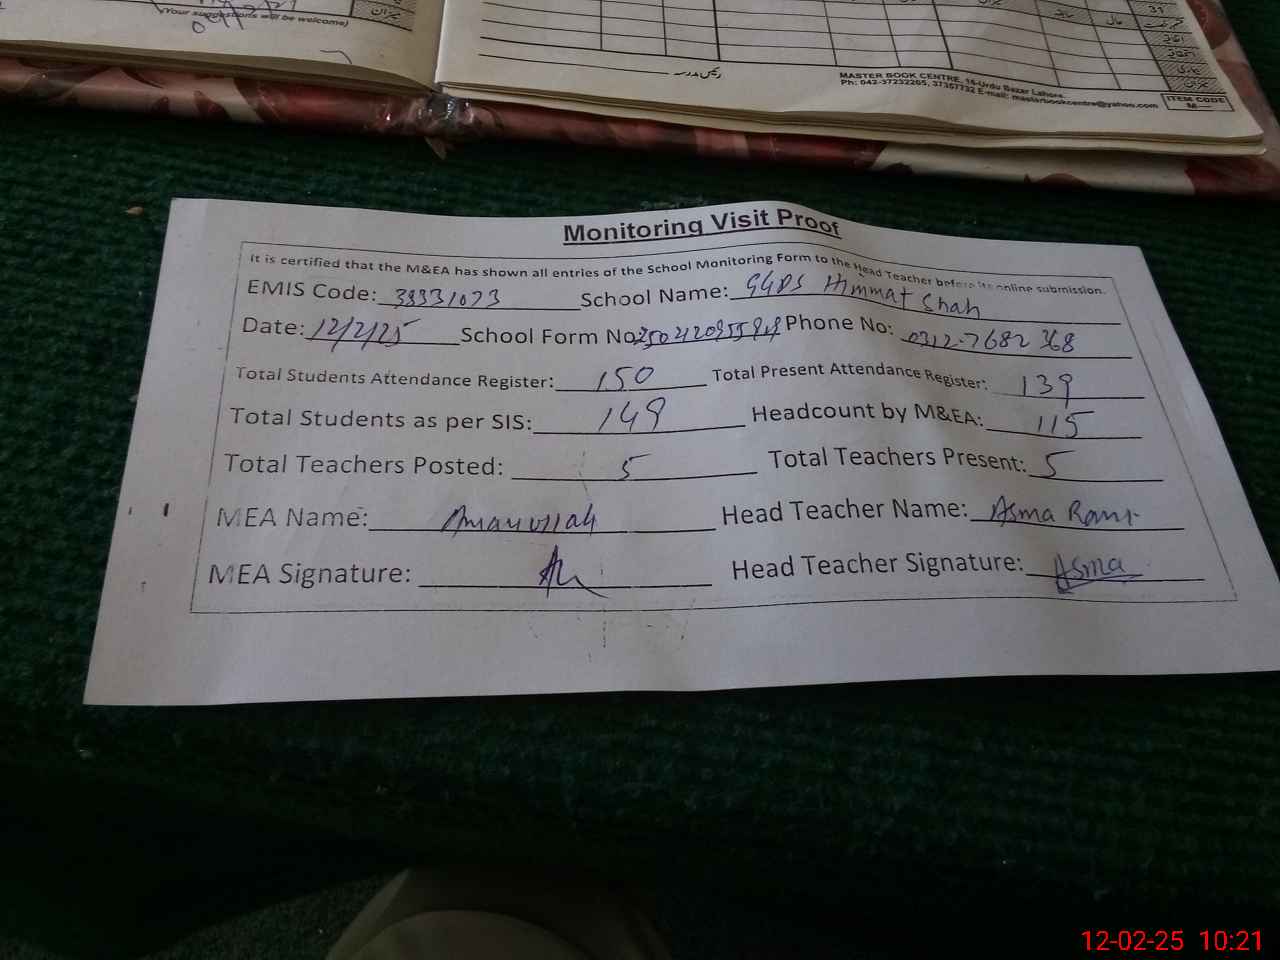 (Your suggestions will be welcome)
رئیس مدرسہ
MASTER BOOK CENTRE, 16-Urdu Bazar Lahore.
Ph: 042-37232265, 37357732 E-mail: masterbookcentre@yahoo.com
ITEM CODE
M
Monitoring Visit Proof
It is certified that the M&EA has shown all entries of the School Monitoring Form to the Head Teacher before its online submission.
EMIS Code: 38331073 School Name: GGPS Himmat Shah
Date: 12/2/25 School Form No: Phone No: 0312-7682368
Total Students Attendance Register: 150 Total Present Attendance Register: 139
Total Students as per SIS: 149 Headcount by M&EA: 115
Total Teachers Posted: 5 Total Teachers Present: 5
MEA Name: Amanullah Head Teacher Name: Asma Rani
MEA Signature: Head Teacher Signature: Asma
12-02-25 10:21